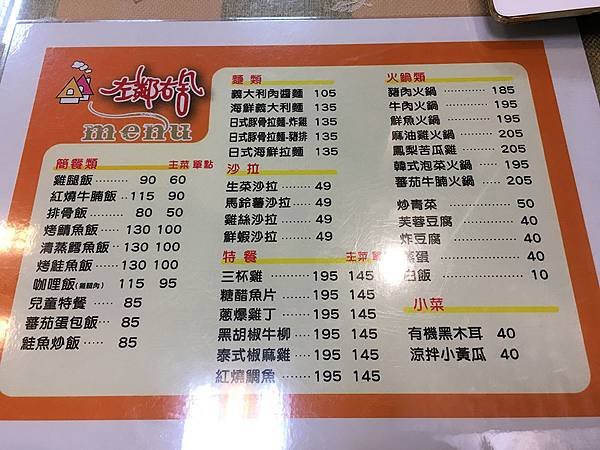 左鄰右舍
menu
簡餐類 主菜單點
雞腿飯 ········ 90 60
紅燒牛腩飯 ··115 90
排骨飯 ········ 80 50
烤鯖魚飯 ···130 100
清蒸鱈魚飯 ·130 100
烤鮭魚飯 ·····130 100
咖哩飯(雞腿肉) 115 95
兒童特餐 ····· 85
蕃茄蛋包飯 ··· 85
鮭魚炒飯 ····· 85
麵類
義大利肉醬麵 105
海鮮義大利麵 135
日式豚骨拉麵-炸雞 135
日式豚骨拉麵-豬排 135
日式海鮮拉麵 135
沙拉
生菜沙拉 ········ 49
馬鈴薯沙拉 ····· 49
雞絲沙拉 ········ 49
鮮蝦沙拉 ········ 49
特餐 主菜單
三杯雞 ········· 195 145
糖醋魚片 ······ 195 145
蔥爆雞丁 ······ 195 145
黑胡椒牛柳 ···195 145
泰式椒麻雞 ···195 145
紅燒鯛魚 ······195 145
火鍋類
豬肉火鍋 ············ 185
牛肉火鍋 ············ 195
鮮魚火鍋 ············ 195
麻油雞火鍋 ········· 205
鳳梨苦瓜雞 ········· 205
韓式泡菜火鍋 ····· 195
蕃茄牛腩火鍋 ····· 205
炒青菜 ············ 50
芙蓉豆腐 ········· 40
炸豆腐 ············ 40
蛋 ············ 40
白飯 ············ 10
小菜
有機黑木耳 40
涼拌小黃瓜 40